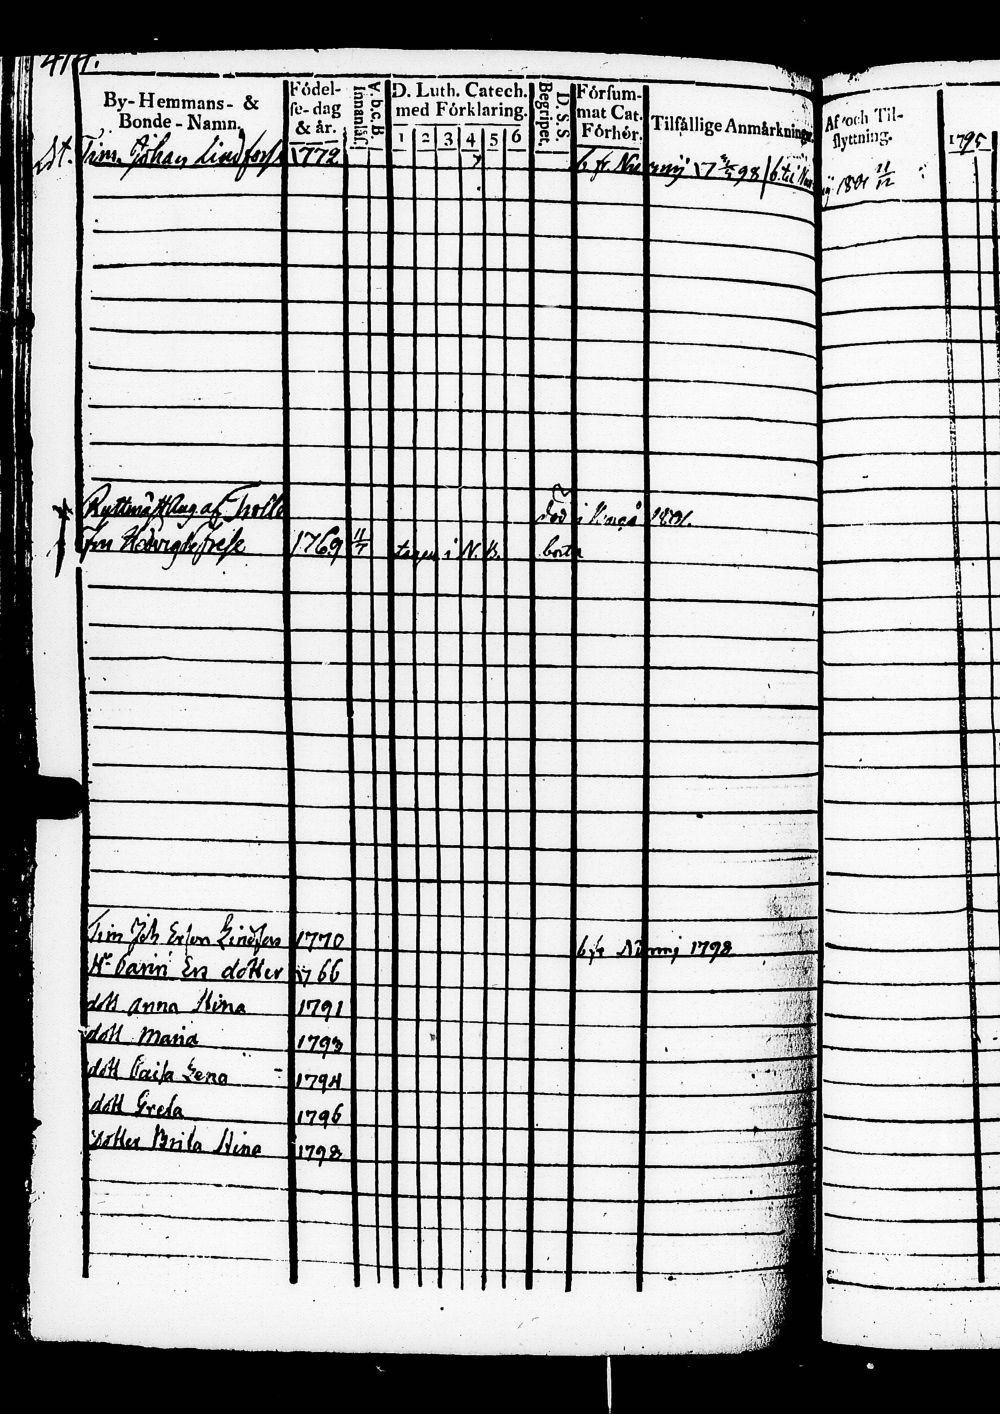 414.
By-Hemmans- & Bonde-Namn.
Födel-se-dag & år.
A.b.c.B. innanläs.
D. Luth. Catech. med Förklaring.
1 2 3 4 5 6
D.S.S. Begripet.
Försum-mat Cat. Förhör.
Tilfällige Anmärkningar
Af och Til-flyttning.
1795
Tim. Johan Lindfors 1772 b. fr. 1798 b. til
1801 11/12
Ryttmäst Aug af Trolle död i 1801.
Fru Hedvig 1769 11/7 tagen i N. B. borta
Tim Joh Erson Lindfors 1770 b fr Nurmi 1798
H. Carin Ers dotter 1766
dott Anna Stina 1791
dott Maria 1793
dott Caisa Lena 1794
dott Greta 1796
Dotter Brita Stina 1798